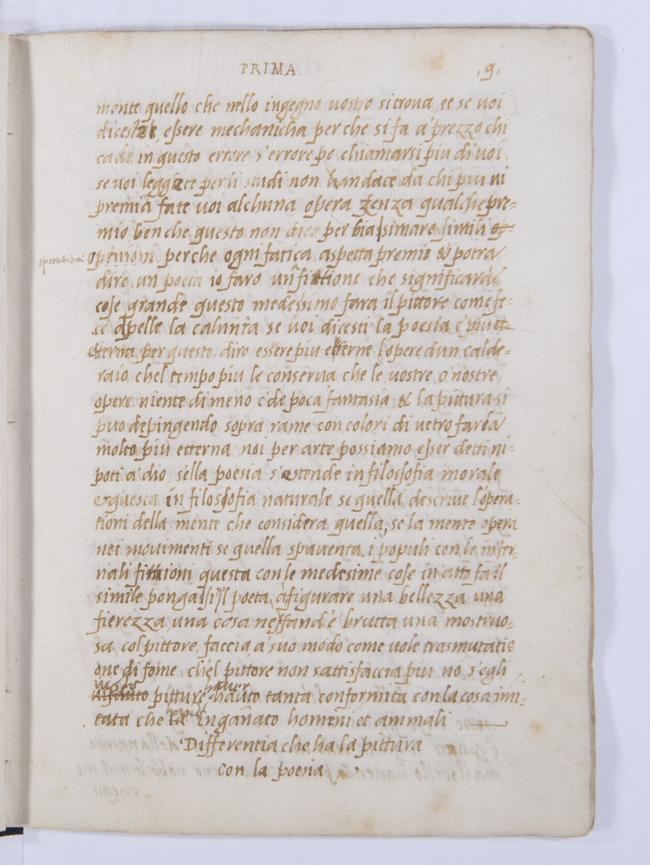 PRIMA.
.9.
mente quello che nello ingegno vostro si trova, et se voi
essere mechanicha per che si fa a' prezzo chi
cade in questo errore s'errore po chiamarsi piu di voi,
se voi leggete per li studi non handate da chi piu vi
premia fate voi alchuna opera zenza qualche pre=
mio ben che questo non dico per biassimare simili op=
operationi
penioni perche ogni fatica aspetta premio & potra
dire un poeta io faro un che significara
cose grande questo medessimo fara il pittore come fe=
ce apelle la calunia se voi dicesti la poesia e piu et=
etterna per questo diro essere piu etterne l'opere d'un calde=
raio chel tempo piu le conserva che le vostre o nostre
opere niente di meno e' de poca fantasia & la pittura si
puo depingendo sopra rame con colori di vetro farla
molto piu etterna noi per arte possiamo esser detti ni=
poti a' dio, s'ella poesia s'estende in filosofia morale
& questa in filosofia naturale se quella descrive l'opera=
tioni della mente che considera quella, se la mente opera
nei movimenti se quella spaventa i populi con le infer=
nali fintioni questa con le medesime cose in atto fa il
simile pongasi il poeta a figurare una bellezza una
fierezza una cosa neffand'e brutta una mostruo=
sa, col pittore, faccia a suo modo come vole trasmutati
one di forme, ch'el pittore non sattisfaccia piu no, s'egli
pitture hauto tanta conformita con la cosa imi=
tata che ingañato homeni et animali
Differentia che ha la pittura
con la poesia